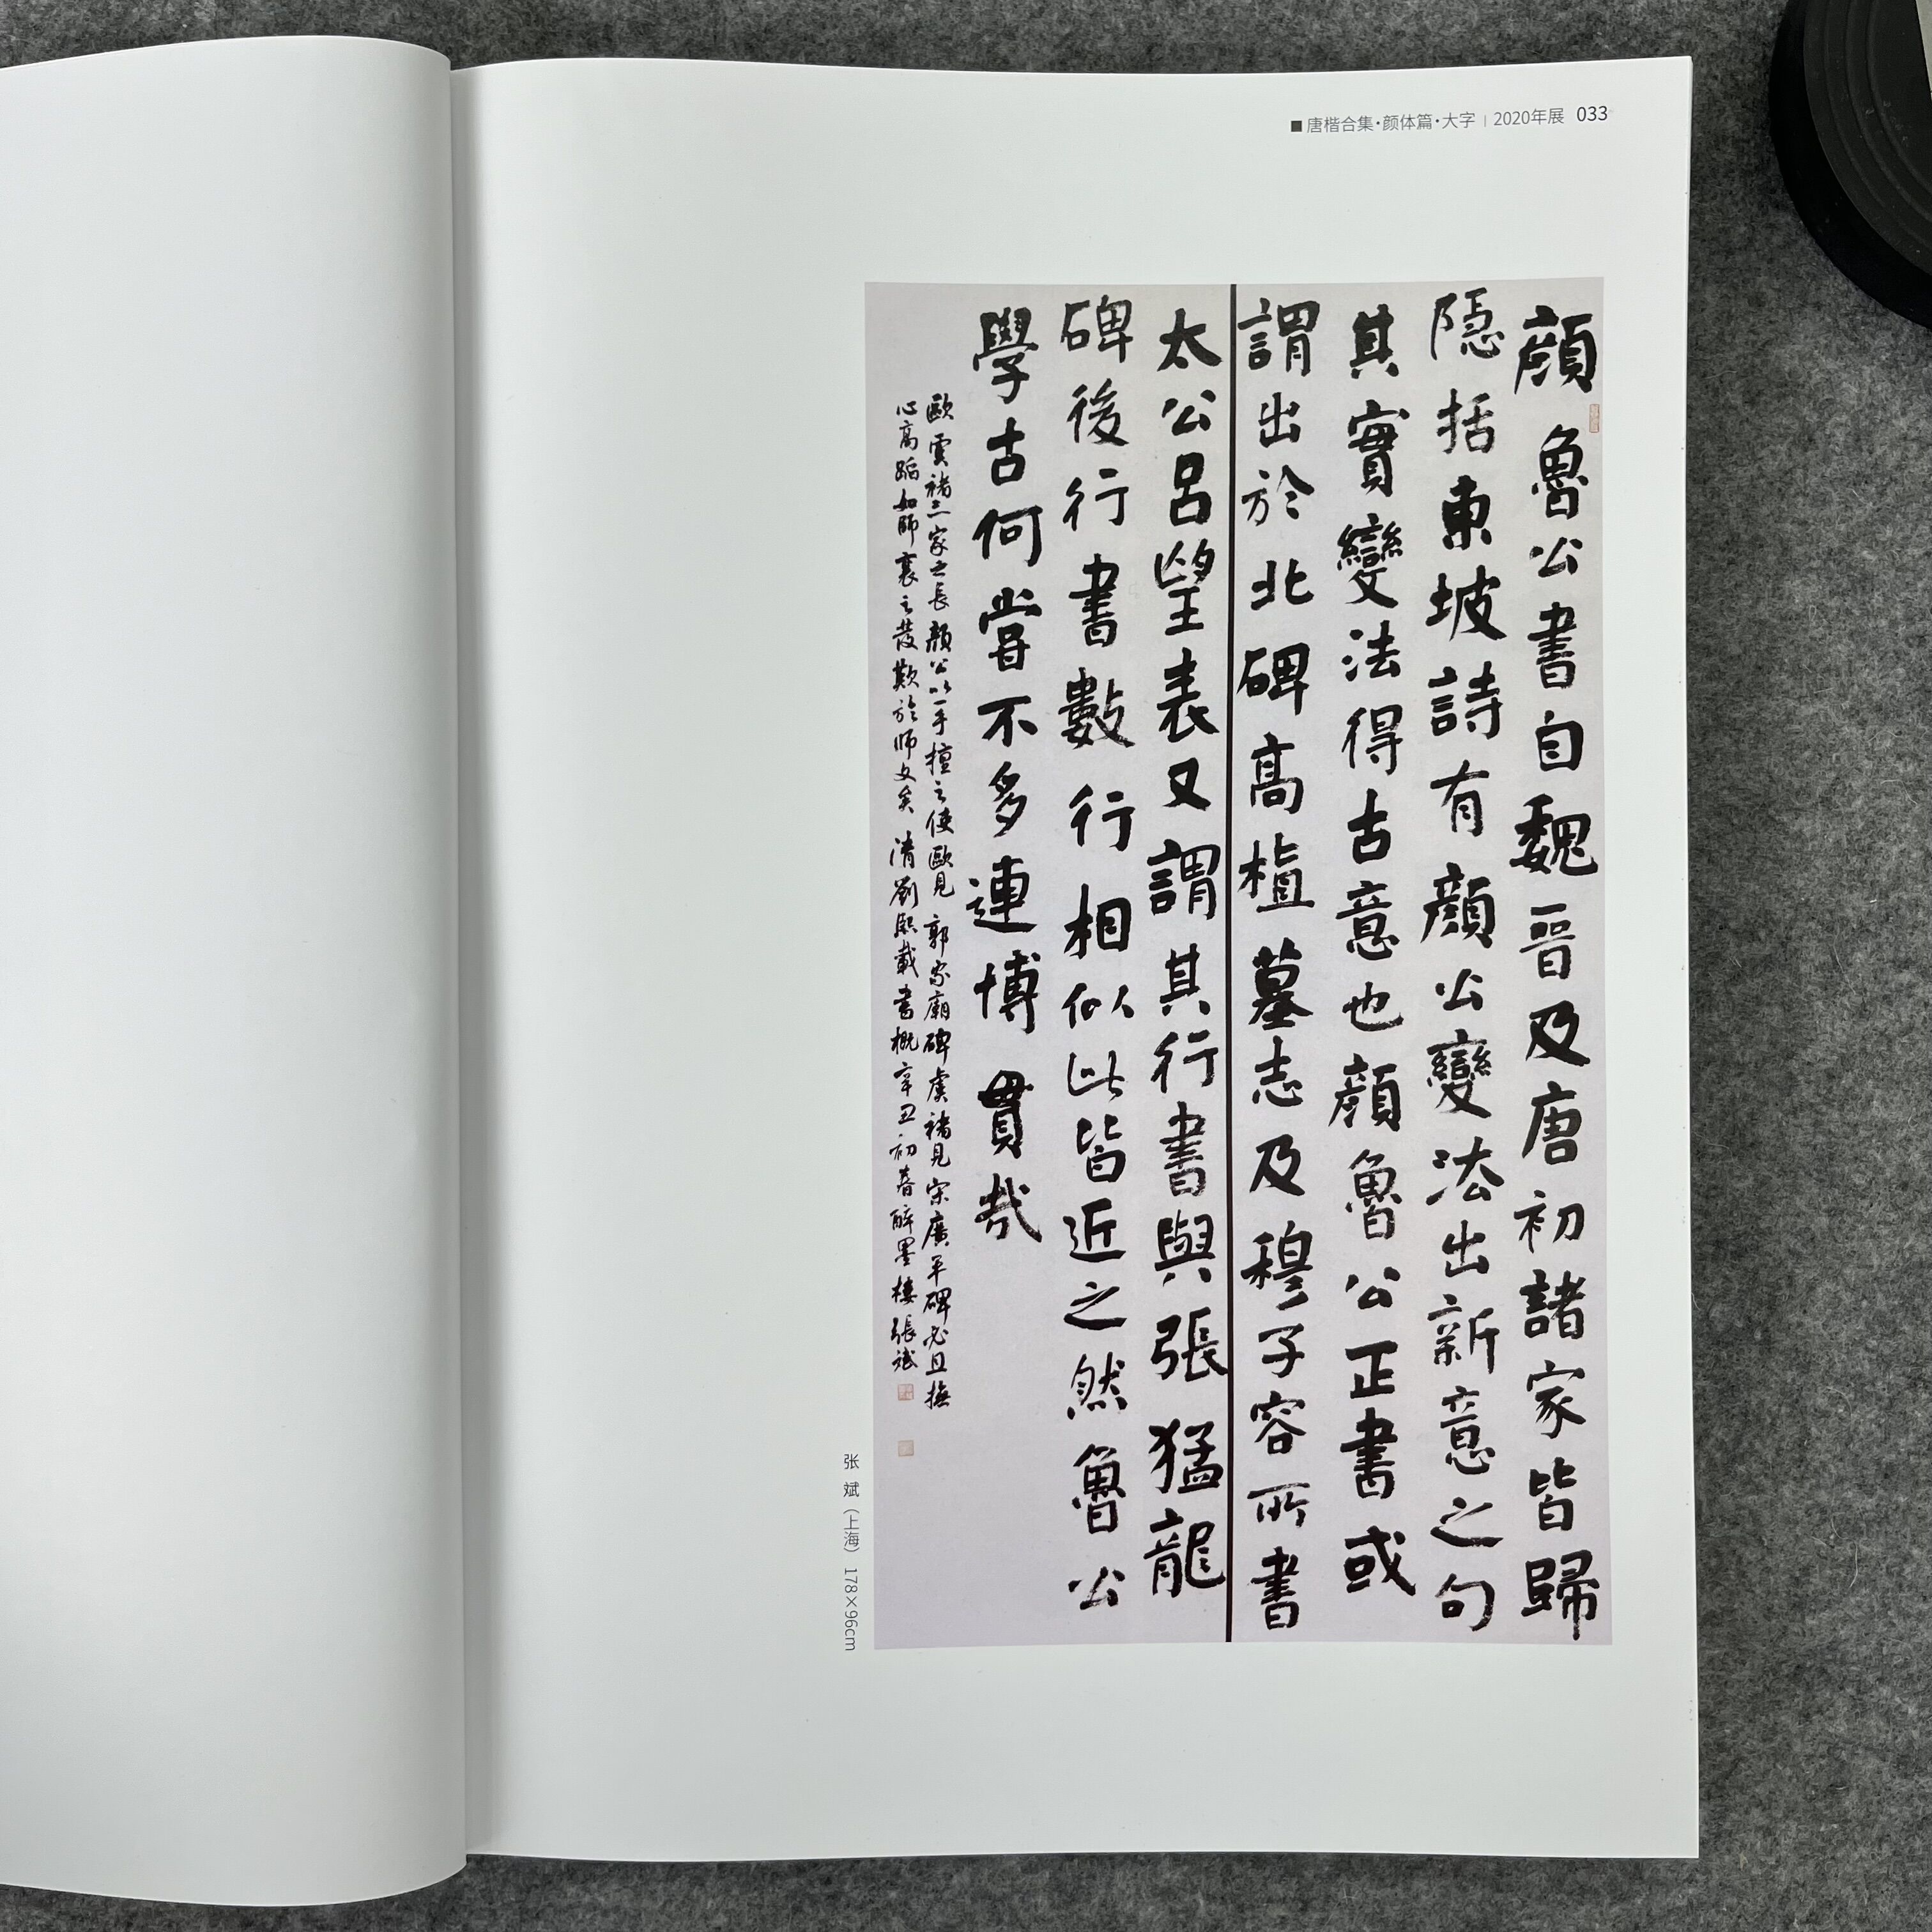 ■唐楷合集·颜体篇·大字 | 2020年展 033
顔魯公書自魏晉及唐初諸家皆歸
隱括東坡詩有顔公變法出新意之句
其實變法得古意也顔魯公正書或
謂出於北碑高植墓志及穆子容所書
太公呂望表又謂其行書與張猛龍
碑後行書數行相似此皆近之然魯公
學古何嘗不多連博貫哉
歐虞褚三家之長顔公以一手擅之使歐見郭家廟碑虞褚見宋廣平碑必且撫
心高蹈如師襄之發歎於师文矣清劉熙載書概辛丑初春醉墨樓張斌
张 斌（上海） 178×96cm